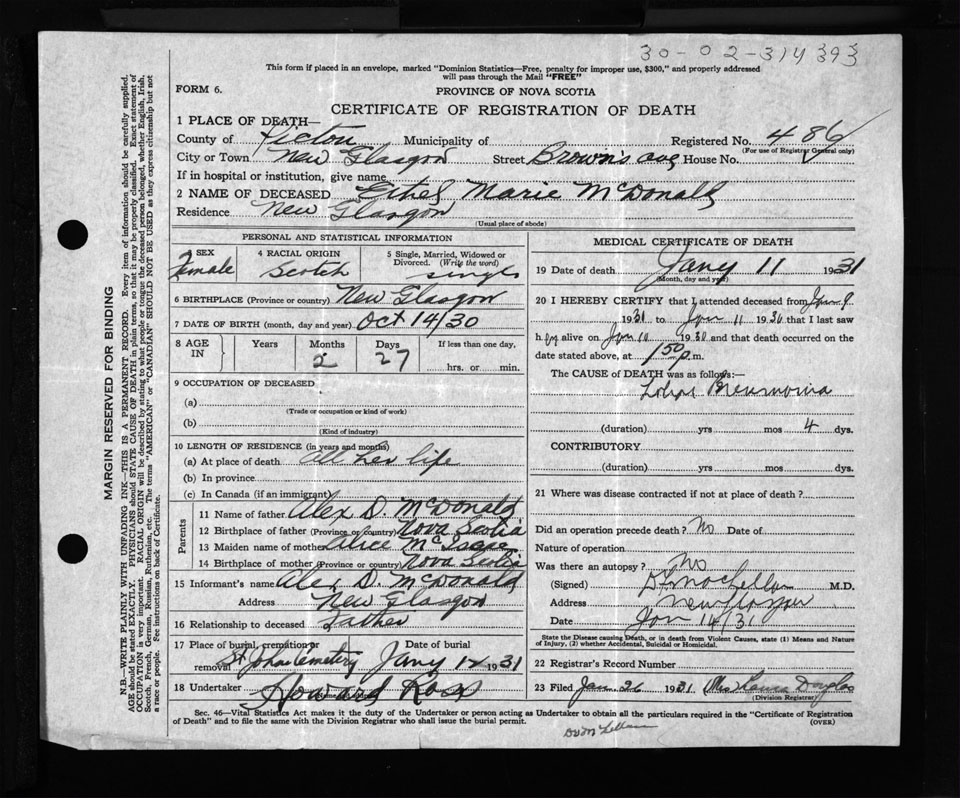 30-02-314393
This form if placed in an envelope, marked "Dominion Statistics—Free, penalty for improper use, $300," and properly addressed
will pass through the Mail "FREE"
FORM 6.
PROVINCE OF NOVA SCOTIA
CERTIFICATE OF REGISTRATION OF DEATH
1 PLACE OF DEATH—
County of Pictou Municipality of Registered No. 486
(For use of Registrar General only)
City or Town New Glasgow Street Brown's ave House No.
If in hospital or institution, give name
2 NAME OF DECEASED Ethel Marie McDonald
Residence New Glasgow
(Usual place of abode)
PERSONAL AND STATISTICAL INFORMATION
3 SEX Female
4 RACIAL ORIGIN Scotch
5 Single, Married, Widowed or Divorced. (Write the word) single
6 BIRTHPLACE (Province or country) New Glasgow
7 DATE OF BIRTH (month, day and year) Oct 14/30
8 AGE IN Years Months 2 Days 27 If less than one day, hrs. or min.
9 OCCUPATION OF DECEASED
(a)
(Trade or occupation or kind of work)
(b)
(Kind of industry)
10 LENGTH OF RESIDENCE (in years and months)
(a) At place of death All her life
(b) In province
(c) In Canada (if an immigrant)
Parents
11 Name of father Alex D. McDonald
12 Birthplace of father (Province or country) Nova Scotia
13 Maiden name of mother Alice McIsaac
14 Birthplace of mother (Province or country) Nova Scotia
15 Informant's name Alex D. McDonald
Address New Glasgow
16 Relationship to deceased Father
17 Place of burial, cremation or removal St Johns Cemetery Date of burial Jany 12 1931
18 Undertaker Howard Ross
MEDICAL CERTIFICATE OF DEATH
19 Date of death Jany 11 1931
(Month, day and year)
20 I HEREBY CERTIFY that I attended deceased from Jan 9
1931 to Jan 11 1930 that I last saw
h er alive on Jan 10 1930 and that death occurred on the
date stated above, at 1 50 p.m.
The CAUSE of DEATH was as follows:—
Lobar Pneumonia
(duration) yrs mos 4 dys.
CONTRIBUTORY
(duration) yrs mos dys.
21 Where was disease contracted if not at place of death?
Did an operation precede death? No Date of
Nature of operation
Was there an autopsy? No
(Signed) M.D.
Address New Glasgow
Date Jan 14/31
State the Disease causing Death, or in death from Violent Causes, state (1) Means and Nature
of Injury, (2) whether Accidental, Suicidal or Homicidal.
22 Registrar's Record Number
23 Filed Jan 26 1931 Douglas
(Division Registrar)
Sec. 46—Vital Statistics Act makes it the duty of the Undertaker or person acting as Undertaker to obtain all the particulars required in the "Certificate of Registration
of Death" and to file the same with the Division Registrar who shall issue the burial permit.
(OVER)
MARGIN RESERVED FOR BINDING
N.B.—WRITE PLAINLY WITH UNFADING INK—THIS IS A PERMANENT RECORD. Every item of information should be carefully supplied.
AGE should be stated EXACTLY. PHYSICIANS should STATE CAUSE OF DEATH in plain terms, so that it may be properly classified. Exact statement of
OCCUPATION is very important. RACIAL ORIGIN will be described by stating to what people or tongue the deceased person belonged, whether English, Irish,
Scotch, French, German, Russian, Ruthenian, etc. The terms "AMERICAN" or "CANADIAN" SHOULD NOT BE USED as they express citizenship but not
a race or people. See instructions on back of Certificate.